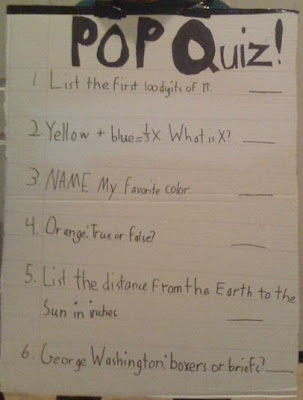 POP Quiz!
1. List the first 100 digits of π.
2. Yellow + blue = ⅓X What is X?
3. NAME My favorite color.
4. Orange: True or false?
5. List the distance from the Earth to the
Sun in inches
6. George Washington: boxers or briefs?